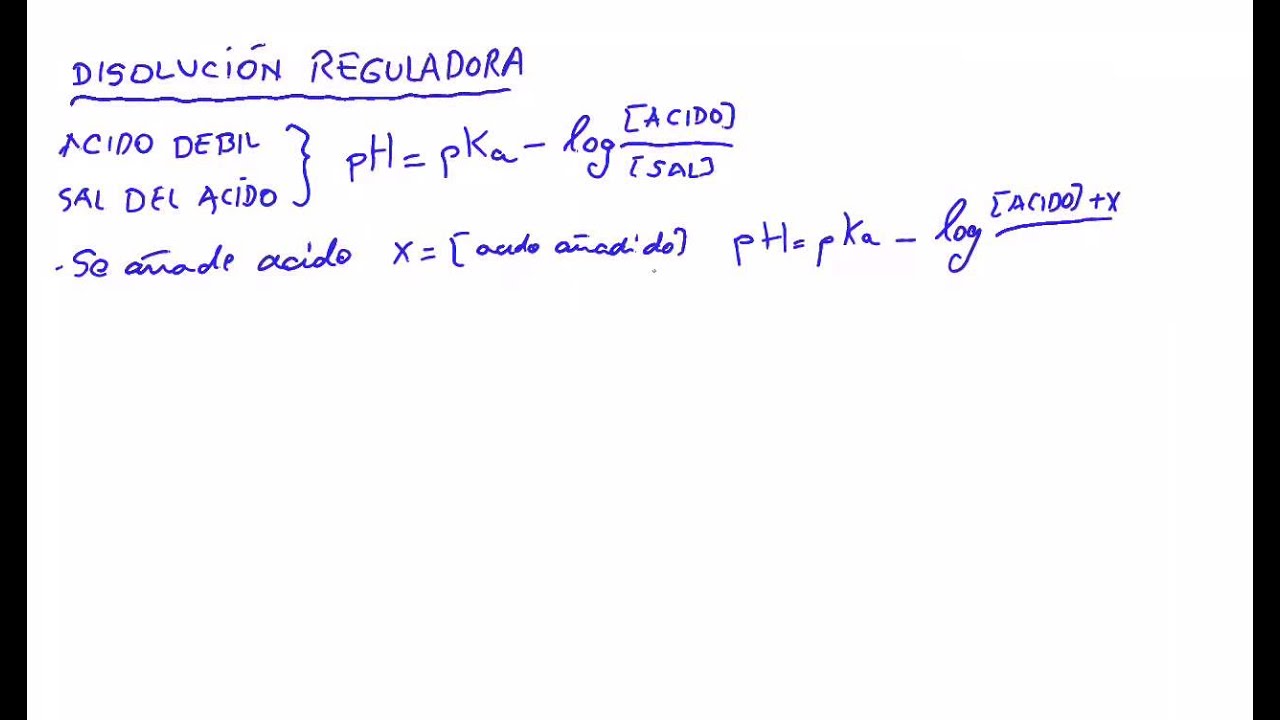 DISOLUCIÓN REGULADORA
ACIDO DEBIL
SAL DEL ACIDO } pH = pKa - log [ACIDO] / [SAL]
· Se añade acido X = [acido añadido] pH = pKa - log [ACIDO] + X